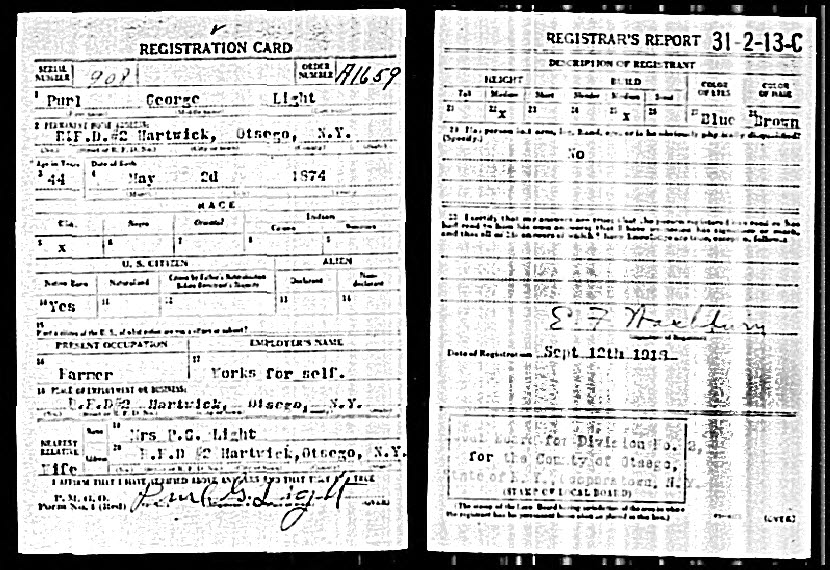 REGISTRATION CARD
SERIAL NUMBER 908
ORDER NUMBER A1659
1 Purl George Light
2 PERMANENT HOME ADDRESS:
R.F.D.#2 Hartwick, Otsego, N.Y.
Age in Years Date of Birth
3 44 4 May 2d 1874
RACE
White Negro Oriental Indian
Citizen Noncitizen
5 x 6 7 8 9
U. S. CITIZEN ALIEN
Native Born Naturalized Citizen by Father's Naturalization Before Registrant's Majority Declarant Non-declarant
10 Yes 11 12 13 14
15
If not a citizen of the U. S., of what nation are you a citizen or subject?
PRESENT OCCUPATION EMPLOYER'S NAME
16 Farmer 17 Works for self.
18 PLACE OF EMPLOYMENT OR BUSINESS:
R.F.D#2 Hartwick, Otsego, N.Y.
NEAREST RELATIVE Name 19 Mrs P.G. Light
Address 20 R.F.D #2 Hartwick, Otsego, N.Y.
Wife
I AFFIRM THAT I HAVE VERIFIED ABOVE ANSWERS AND THAT THEY ARE TRUE
P. M. G. O.
Form No. 1 (Red) Purl G Light (OVER)
REGISTRAR'S REPORT 31-2-13-C
DESCRIPTION OF REGISTRANT
HEIGHT BUILD COLOR OF EYES COLOR OF HAIR
Tall Medium Short Slender Medium Stout
21 22 x 23 24 25 x 26 27 Blue 28 Brown
29 Has person lost arm, leg, hand, eye, or is he obviously physically disqualified?
(Specify.)
No
30 I certify that my answers are true; that the person registered has read or has
had read to him his own answers; that I have witnessed his signature or mark,
and that all of his answers of which I have knowledge are true, except as follows:
E F Washburn
Date of Registration Sept 12th 1918
Local Board for Division No. 2,
for the County of Otsego,
State of N.Y. Cooperstown, N.Y.
(STAMP OF LOCAL BOARD)
(The stamp of the Local Board having jurisdiction of the area in which
the registrant has his permanent home shall be placed in this box.)
(OVER)